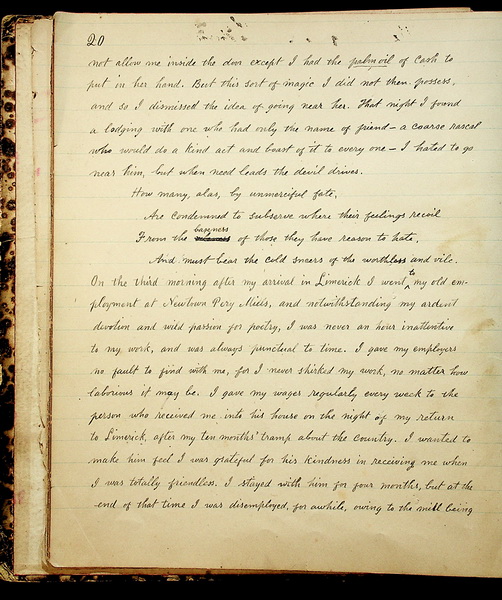 20
not allow me inside the door except I had the palm oil of cash to
put in her hand. But this sort of magic I did not then possess,
and so I dismissed the idea of going near her. That night I found
a lodging with one who had only the name of friend – a coarse rascal
who would do a kind act and boast of it to every one – I hated to go
near him, but when need leads the devil drives.
How many, alas, by unmerciful fate,
Are condemned to subserve where their feelings recoil
baseness
From the of those they have reason to hate,
And must bear the cold sneers of the worthless and vile.
On the third morning after my arrival in Limerick I went to my old em-
ployment at Newtown Pery Mills, and notwithstanding my ardent
devotion and wild passion for poetry, I was never an hour inattentive
to my work, and was always punctual to time. I gave my employers
no fault to find with me, for I never shirked my work, no matter how
laborious it may be. I gave my wages regularly every week to the
person who received me into his house on the night of my return
to Limerick, after my ten months' tramp about the country. I wanted to
make him feel I was grateful for his kindness in receiving me when
I was totally friendless. I stayed with him for four months, but at the
end of that time I was disemployed, for awhile, owing to the mill being